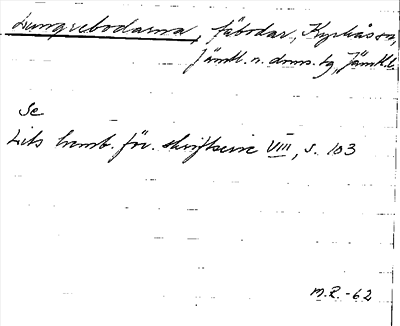 Lungrebodarna, fäbodar, Kyrkåsen,
Jämtl. n. doms. tg, Jämtl. l.
Se
Lits hemb. för. skriftserie VIII, s. 103
M.R. -62